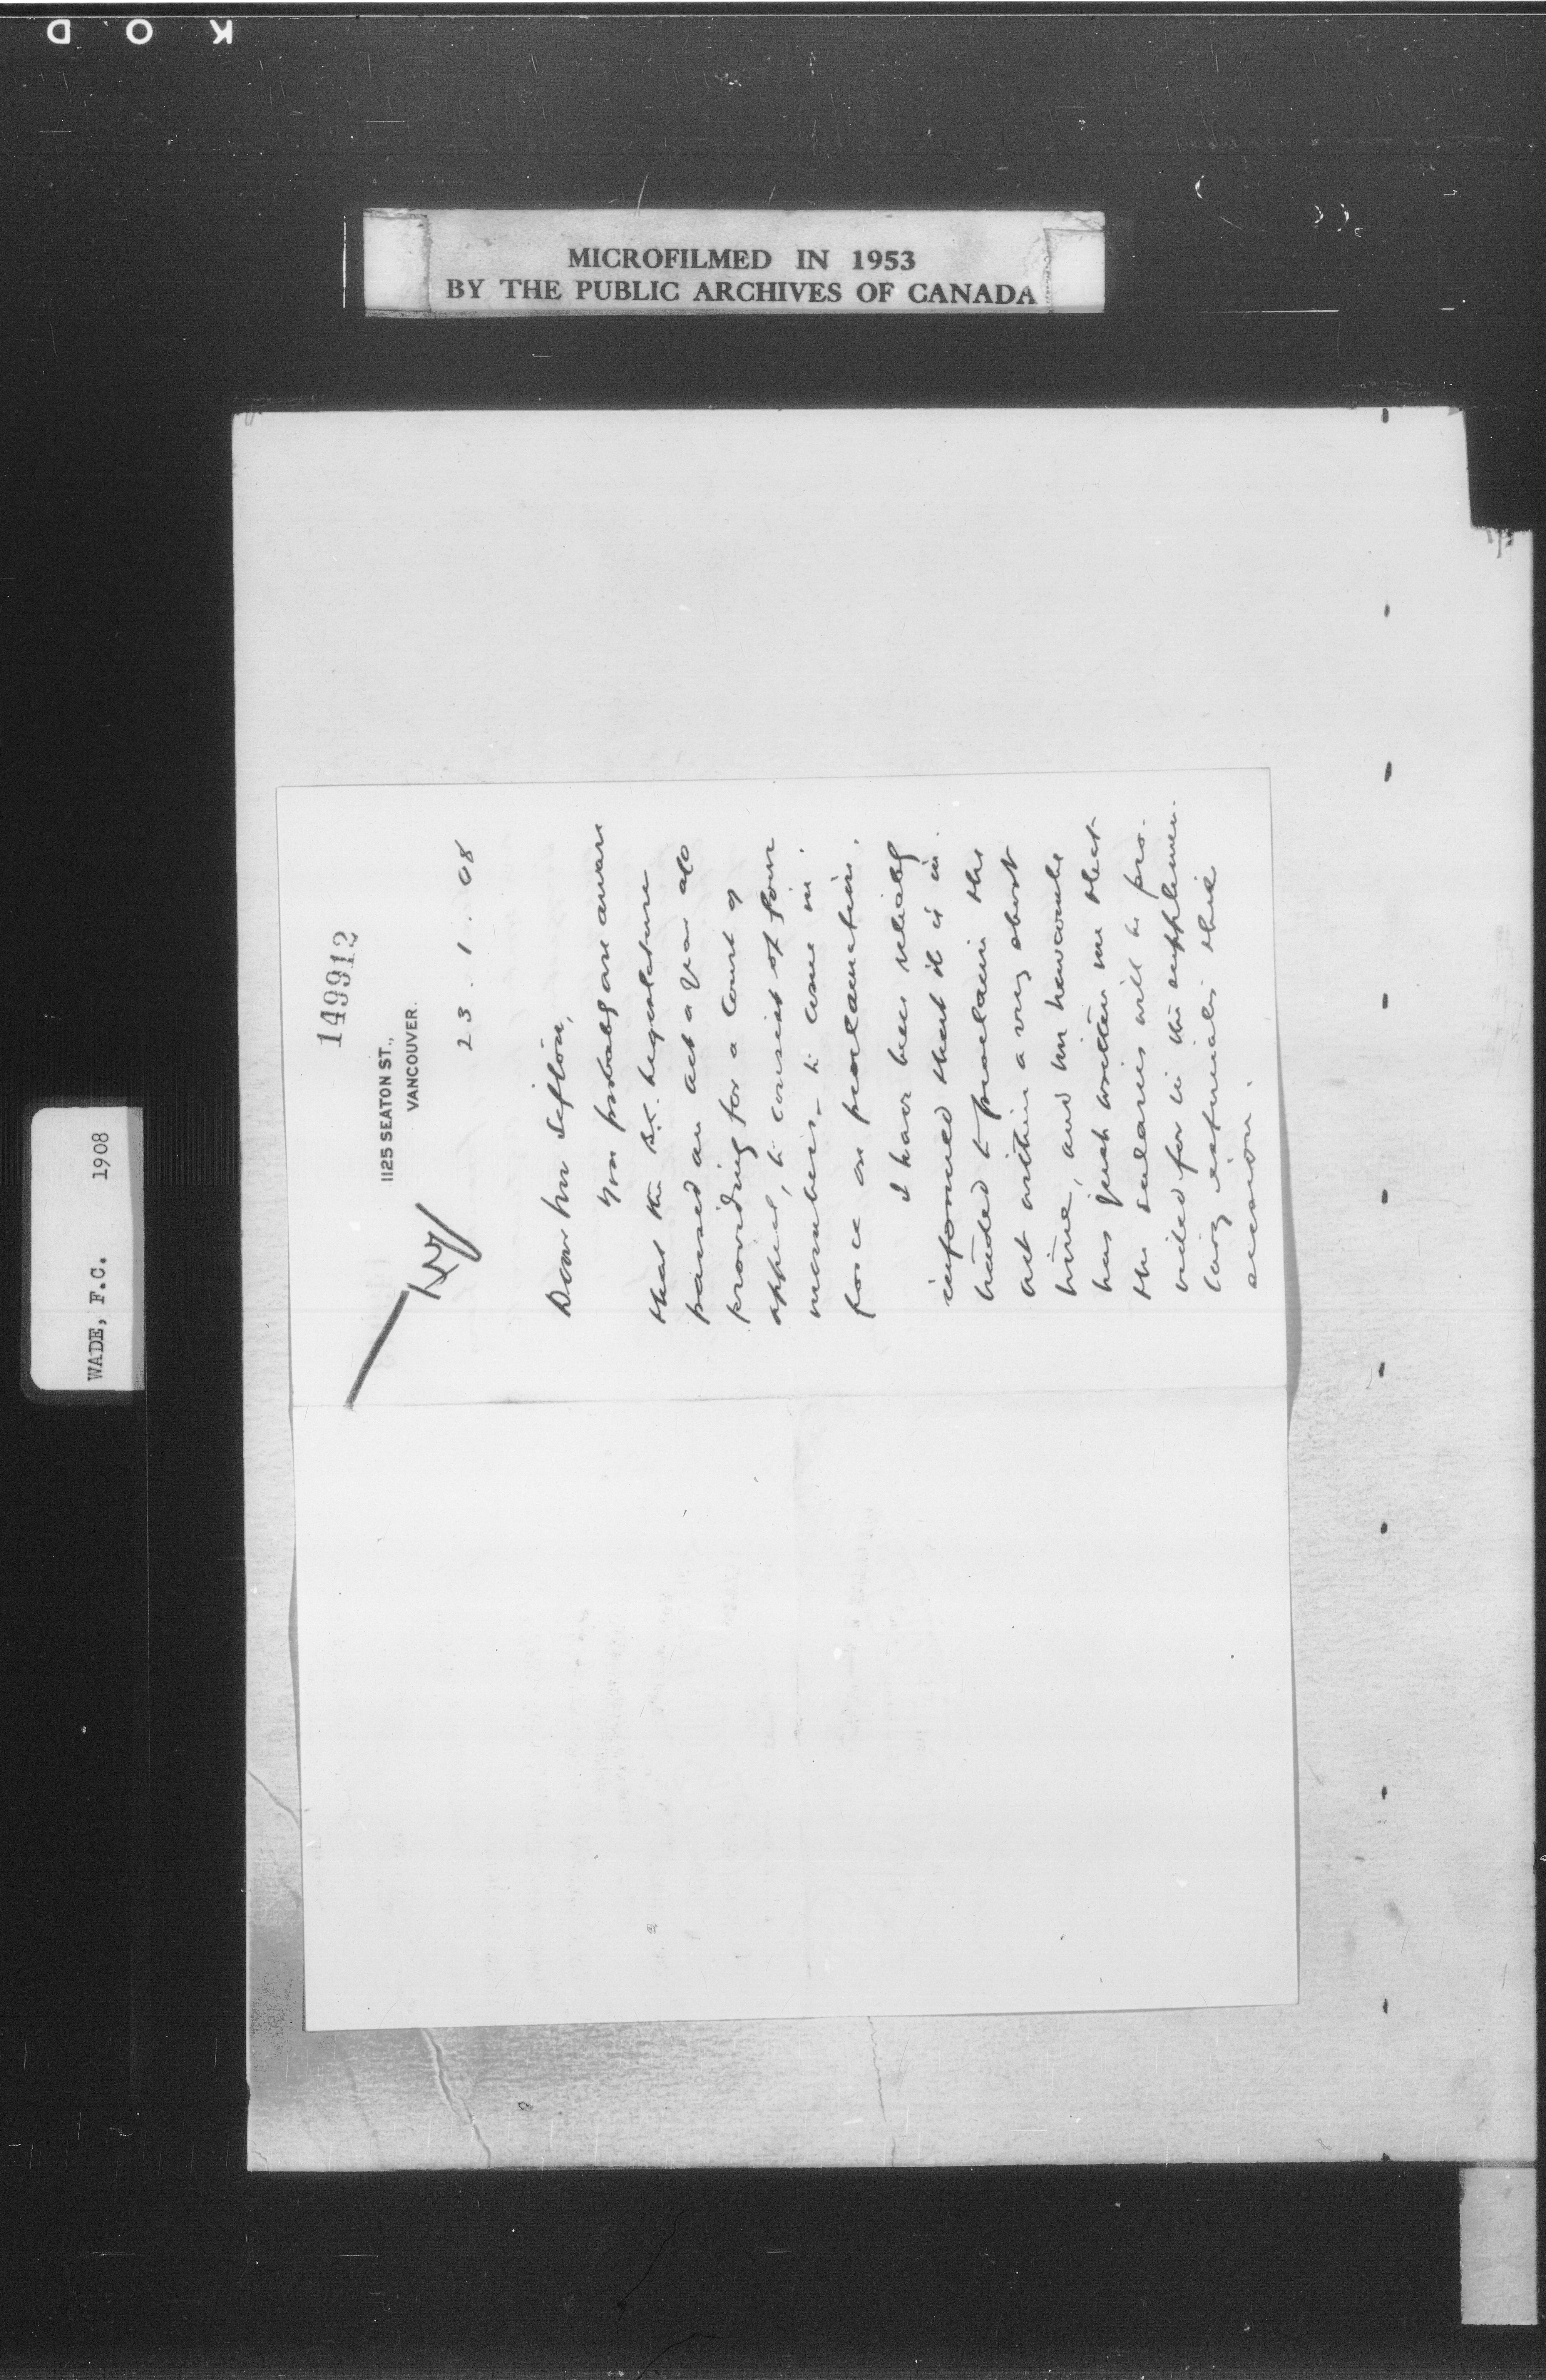 K O D
MICROFILMED IN 1953
BY THE PUBLIC ARCHIVES OF CANADA
WADE, F.C. 1908
149912
1125 SEATON ST.,
VANCOUVER.
23. 1. 08
Dear Mr Sifton,
You probably are aware
that the B.C. Legislature
passed an act a year ago
providing for a Court of
appeal, to consist of four
members – to come in
force on proclamation.
I have been reliably
informed that it is in-
tended to proclaim the
act within a very short
time, and
has just written me that
the salaries will be pro-
vided for in the supplemen-
tary estimates this
session.